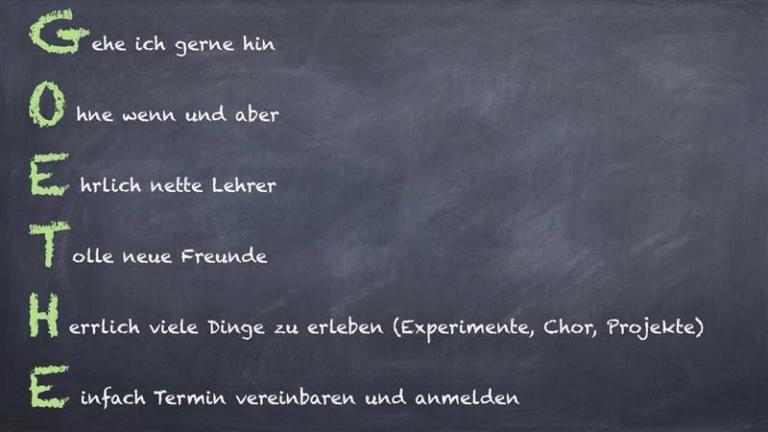 Gehe ich gerne hin
Ohne wenn und aber
Ehrlich nette Lehrer
Tolle neue Freunde
Herrlich viele Dinge zu erleben (Experimente, Chor, Projekte)
Einfach Termin vereinbaren und anmelden